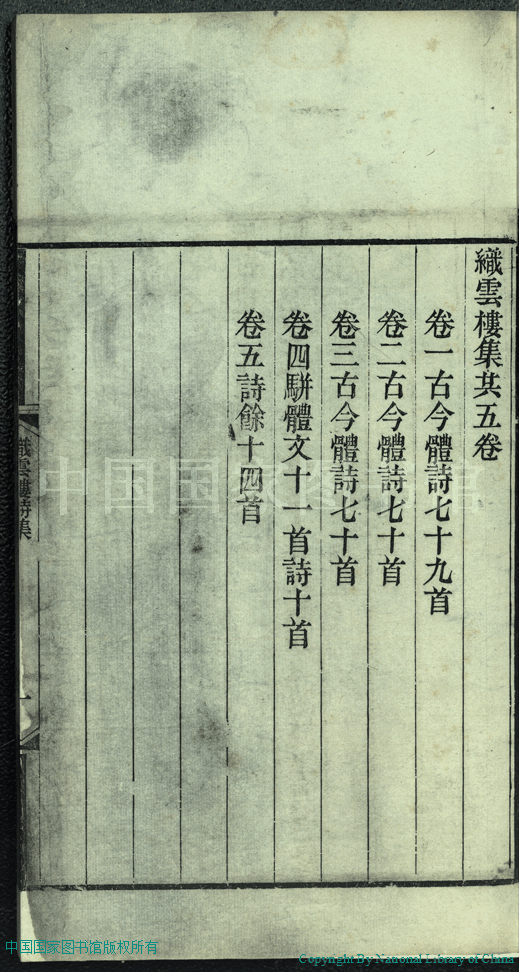 織雲樓集共五卷
卷一古今體詩七十九首
卷二古今體詩七十首
卷三古今體詩七十首
卷四駢體文十一首詩十首
卷五詩餘十四首
織雲樓詩集
一
中国国家图书馆
中国国家图书馆版权所有
Copyright By National Library of China